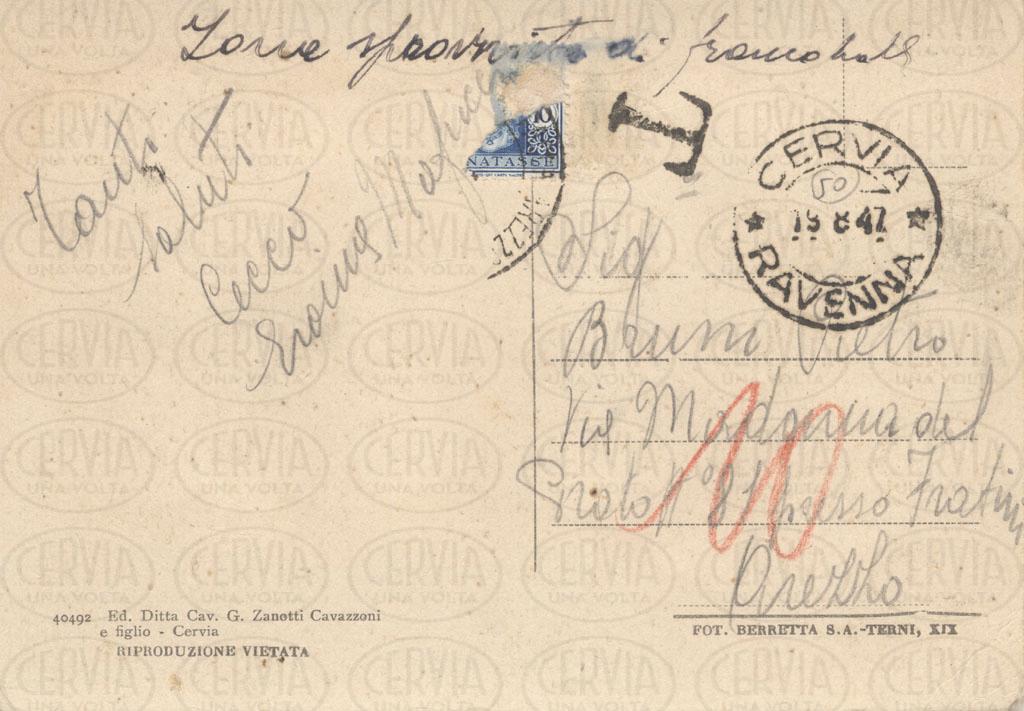 Zona sprovvista di francobolli
Tanti
saluti
Cecco
10
NATASSE
AREZZO
T
CERVIA
50
19 8 47
RAVENNA
Sig
Bruni Pietro
Via Madonna del
Prato N° 81 presso Fratini
Arezzo
10
40492 Ed. Ditta Cav. G. Zanotti Cavazzoni
e figlio - Cervia
RIPRODUZIONE VIETATA
FOT. BERRETTA S.A.-TERNI, XIX
CERVIA
UNA VOLTA